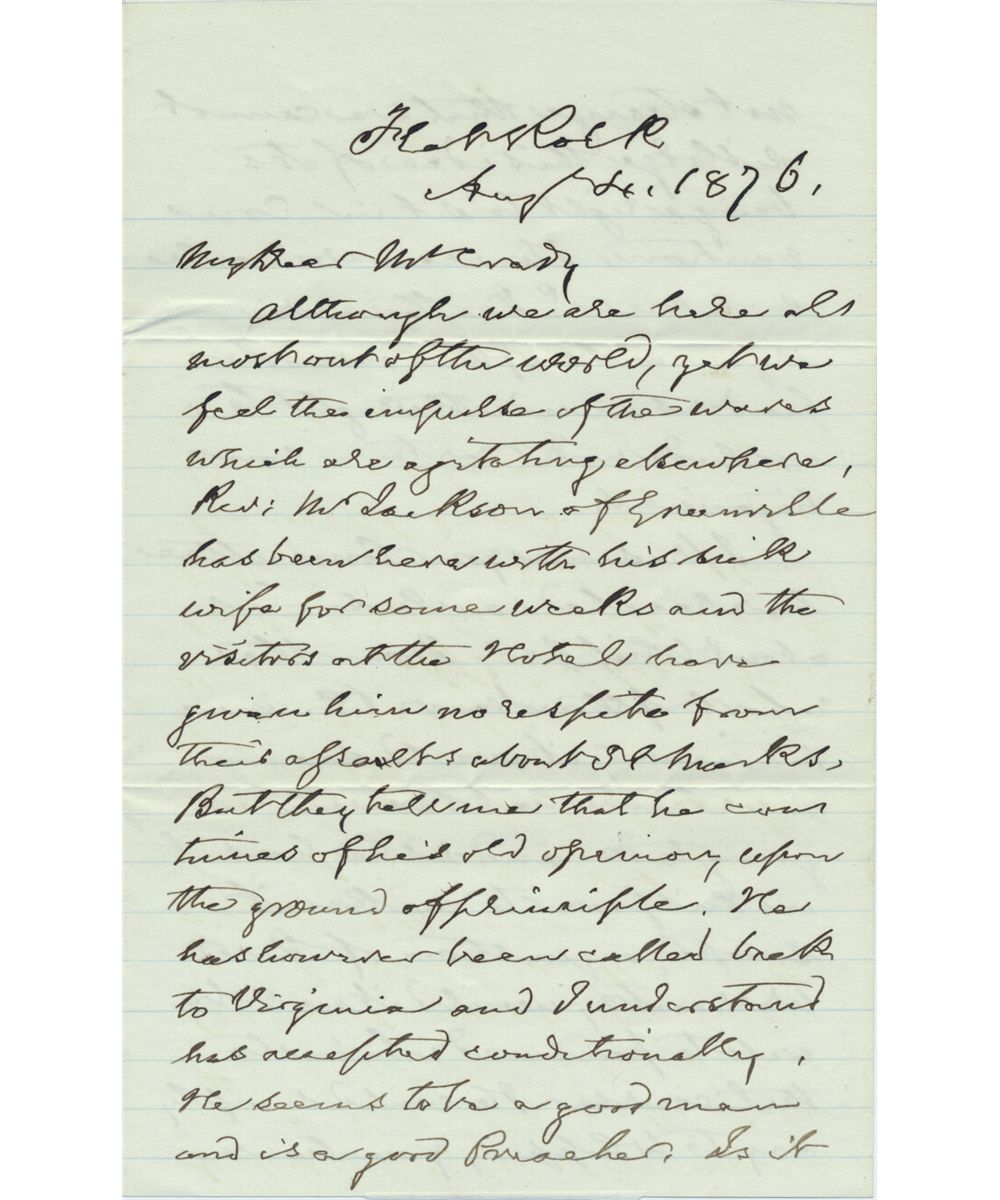 Flat Rock
Aug 4. 1876.
My Dear McCrady
Although we are here al
most out of the world, yet we
feel the impulse of the waves
which are agitating elsewhere,
Rev: Mr Jackson of Greenville
has been here with his sick
wife for some weeks and the
visitors at the Hotel have
given him no respite from
their assaults about St Marks.
But they tell me that he con
tinues of his old opinion, upon
the ground of principle. He
has however been called back
to Virginia and I understand
has accepted conditionally.
He seems to be a good man
and is a good Preacher. Is it